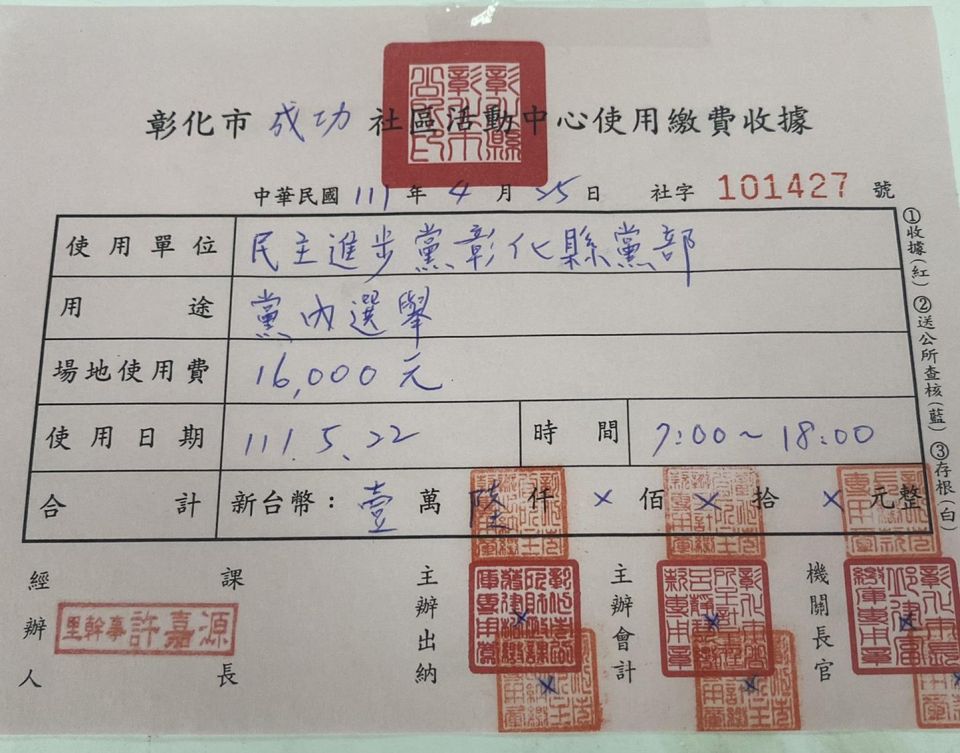 彰化市成功社區活動中心使用繳費收據
中華民國111年4月25日 社字 101427 號
使用單位 民主進步黨彰化縣黨部
用途 黨內選舉
場地使用費 16,000元
使用日期 111.5.22 時間 7:00~18:00
合計 新台幣：壹萬陸仟×佰×拾×元整
①收據(紅)②送公所查核(藍)③存根(白)
經辦人 課長 主辦出納 主辦會計 機關長官
里幹事 許嘉源